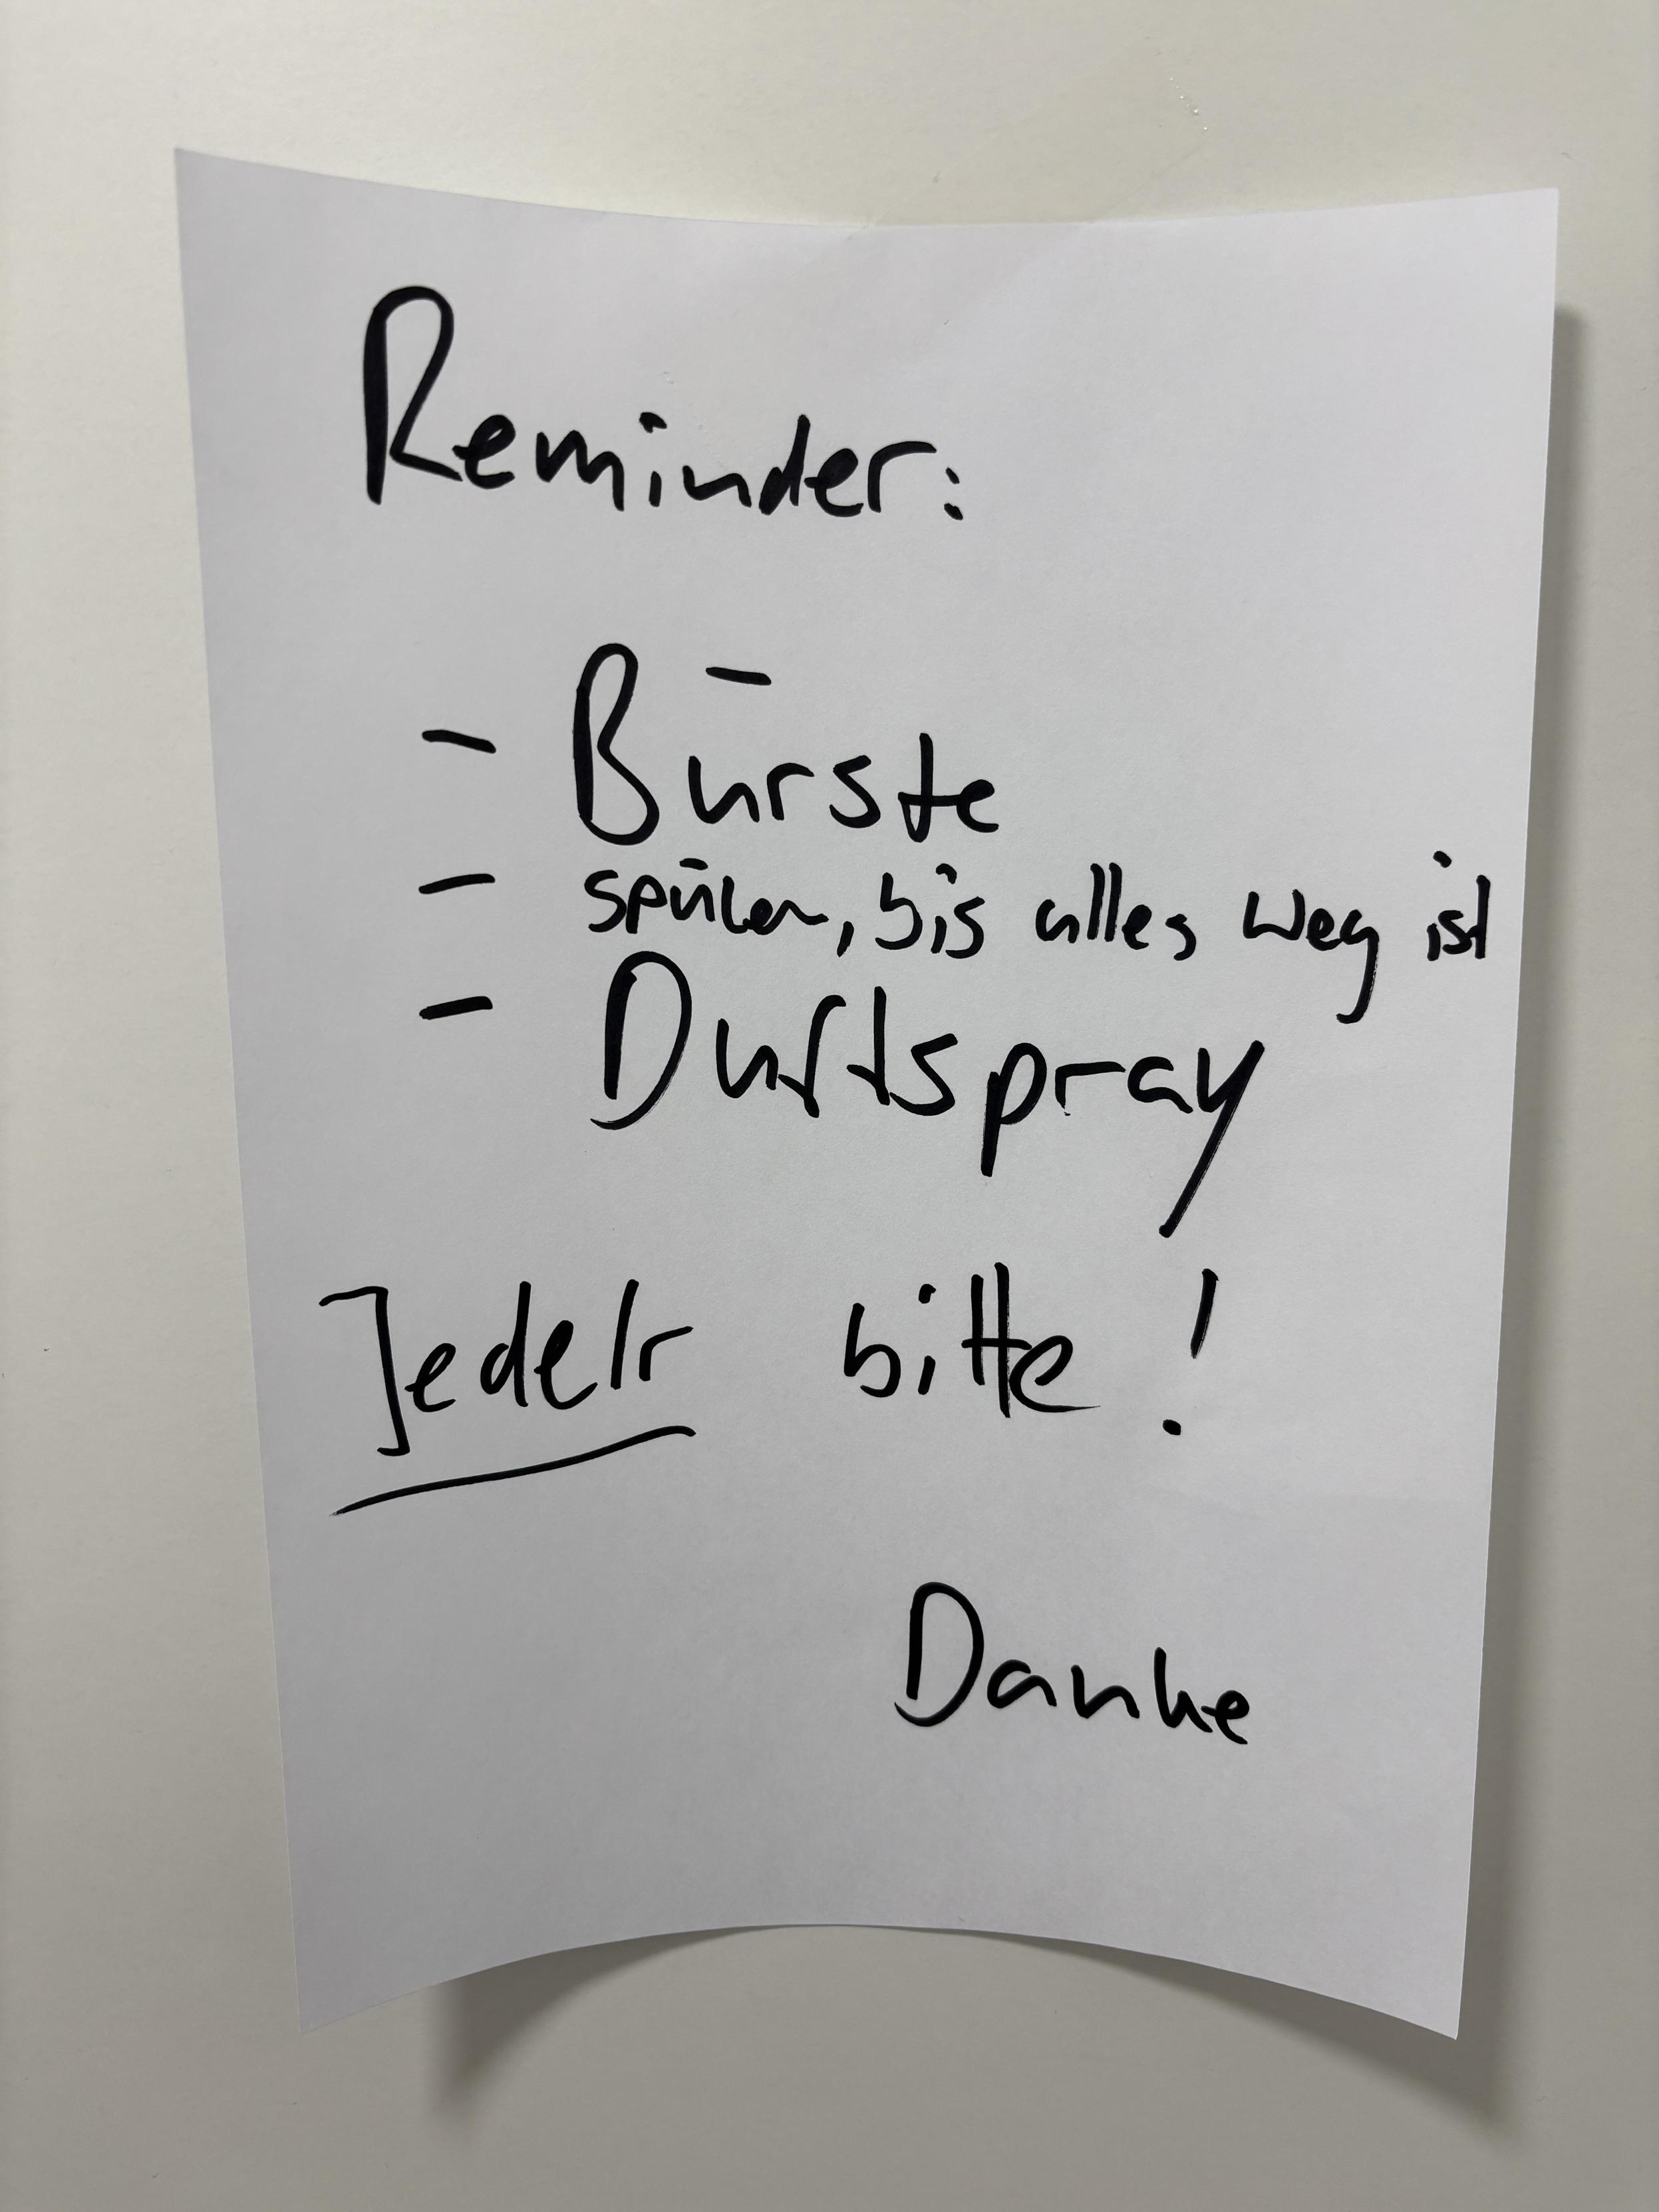 Reminder:
- Bürste
- spülen, bis alles weg ist
- Duftspray
Jede/r bitte!
Danke